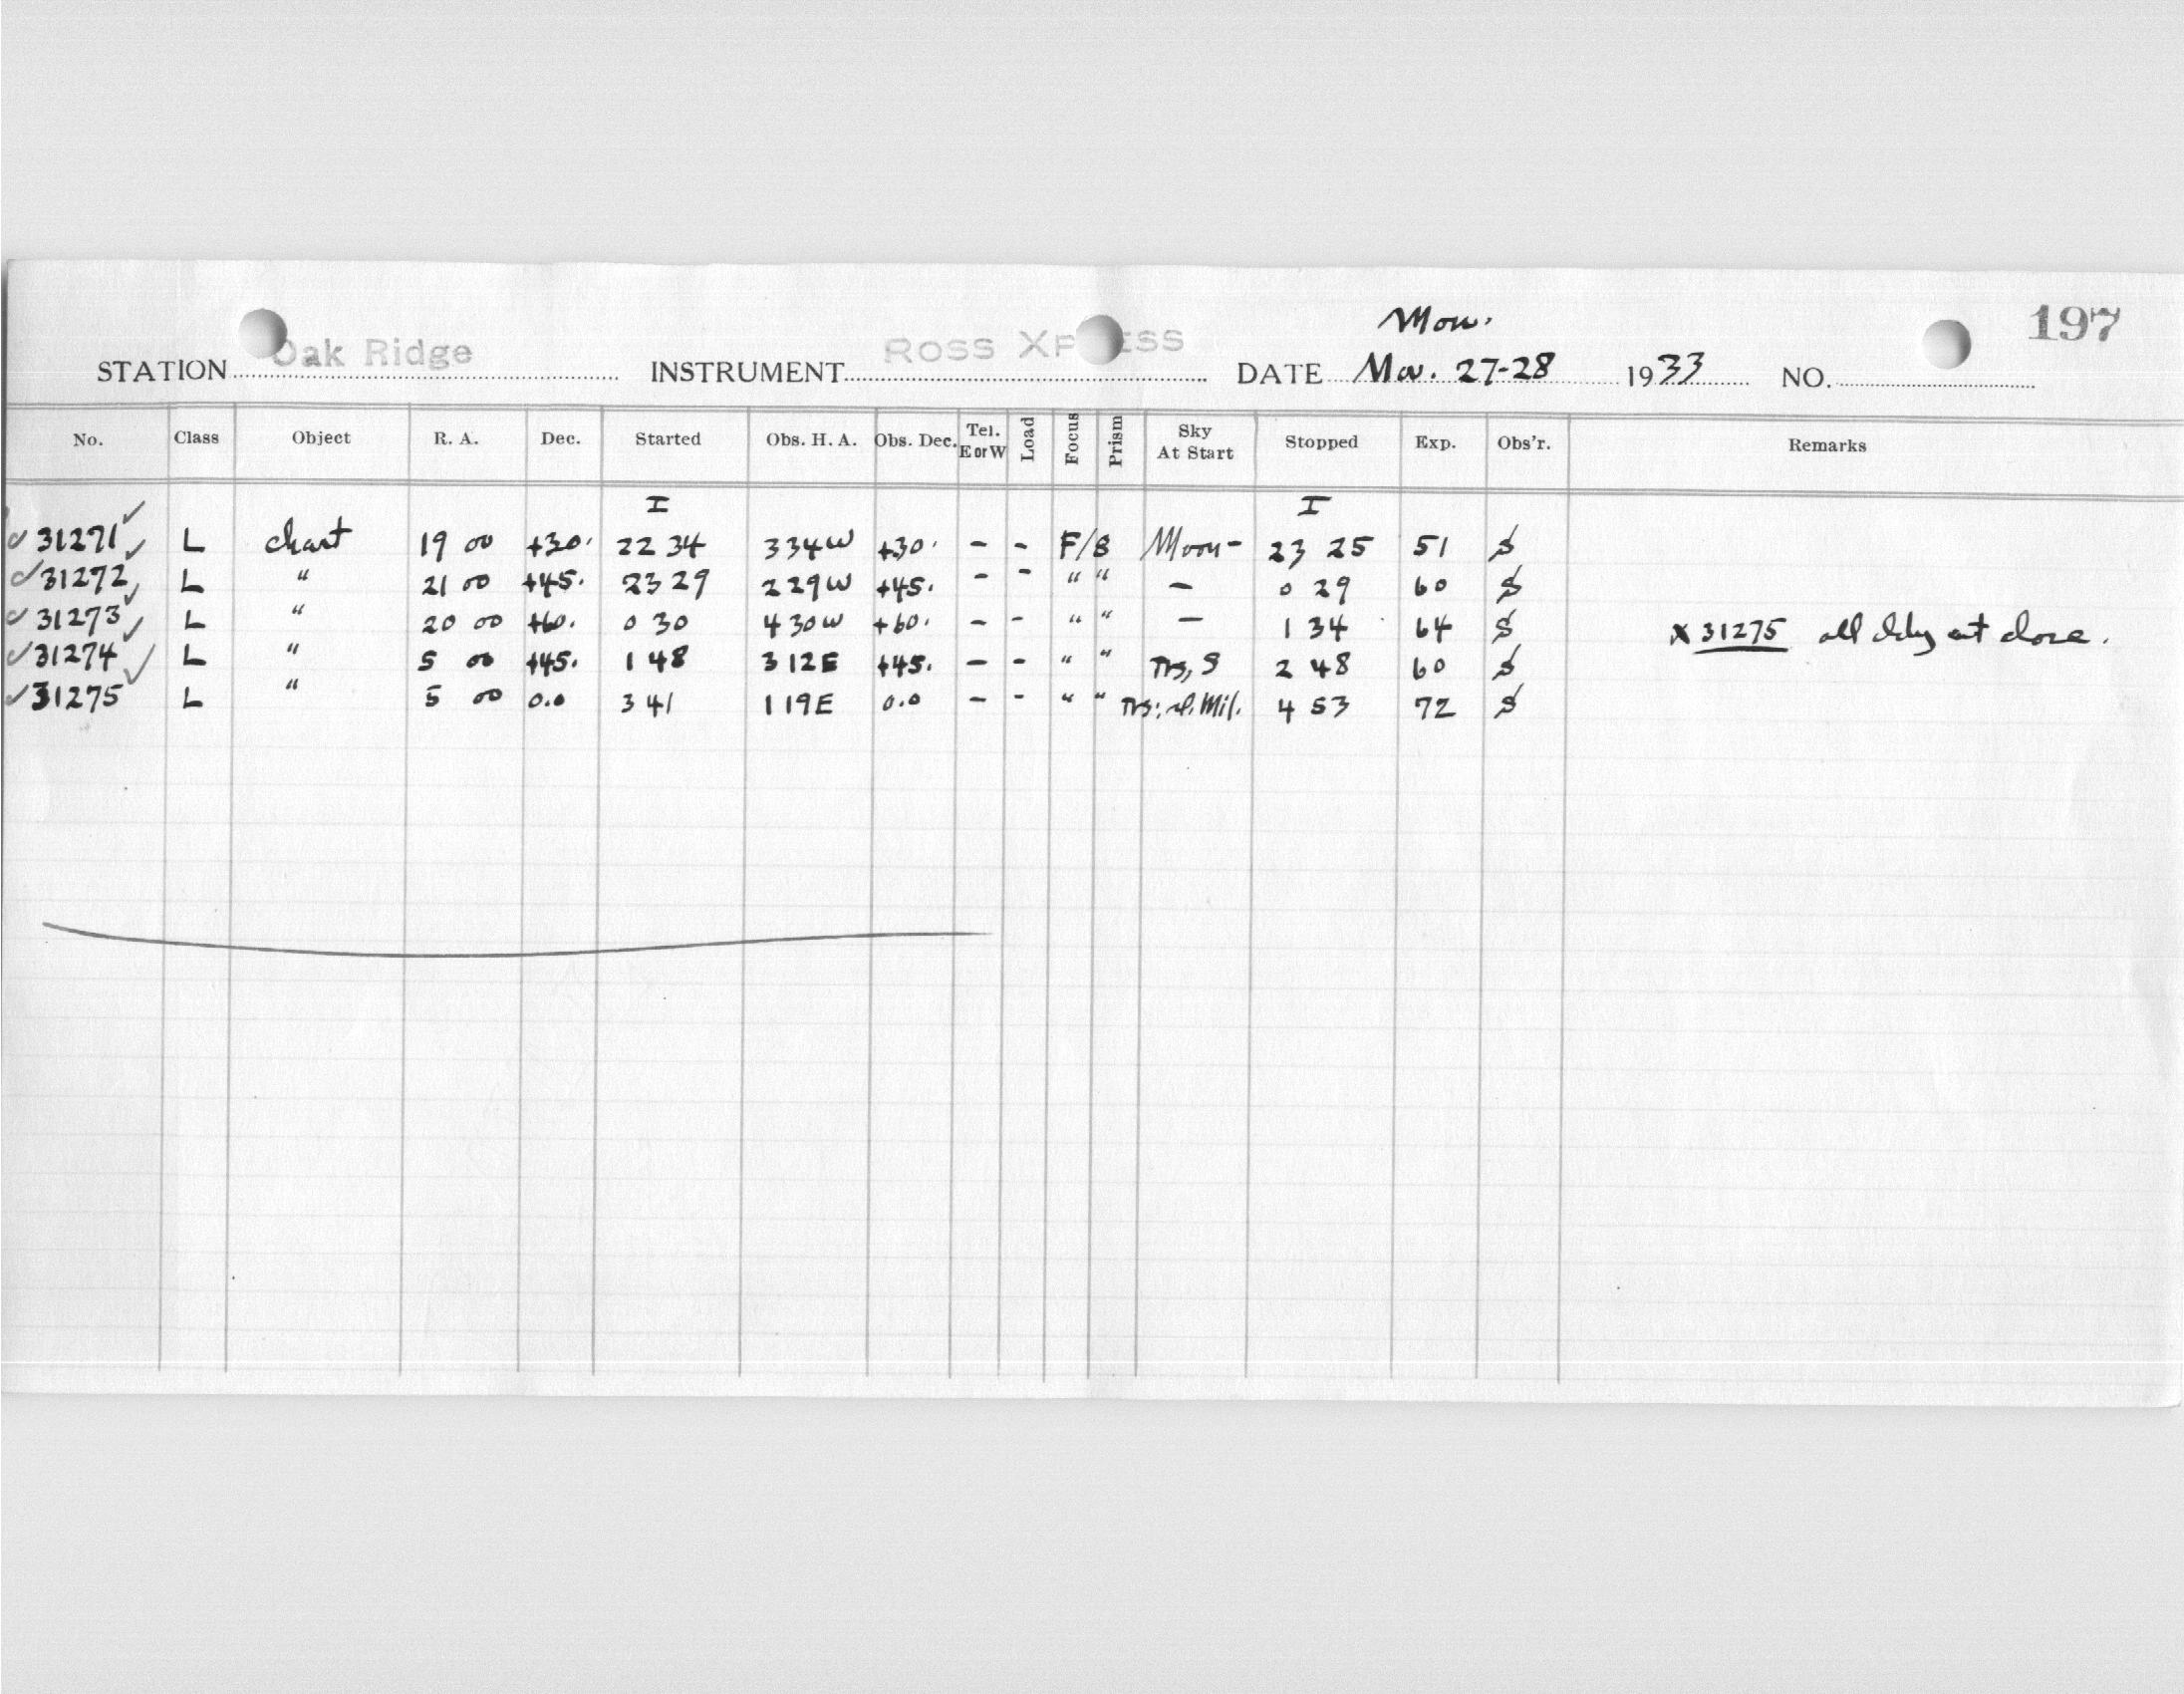 Mon.
197
STATION Oak Ridge INSTRUMENT ROSS XP ESS DATE 27-28 1933 NO.
No. Class Object R. A. Dec. Started Obs. H. A. Obs. Dec. Tel. E or W Load Focus Prism Sky At Start Stopped Exp. Obs'r. Remarks
I I
31271 L chart 19 00 +30. 22 34 3 34 W +30. - - F/8 Moon - 23 25 51 S
31272 L " 21 00 +45. 23 29 2 29 W +45. - - " " - 0 29 60 S
31273 L " 20 00 +60. 0 30 4 30 W +60. - - " " - 1 34 64 S
x 31275 all cldy at close.
31274 L " 5 00 +45. 1 48 3 12 E +45. - - " " Trs, S 2 48 60 S
31275 L " 5 00 0.0 3 41 1 19 E 0.0 - - " " 4 53 72 S